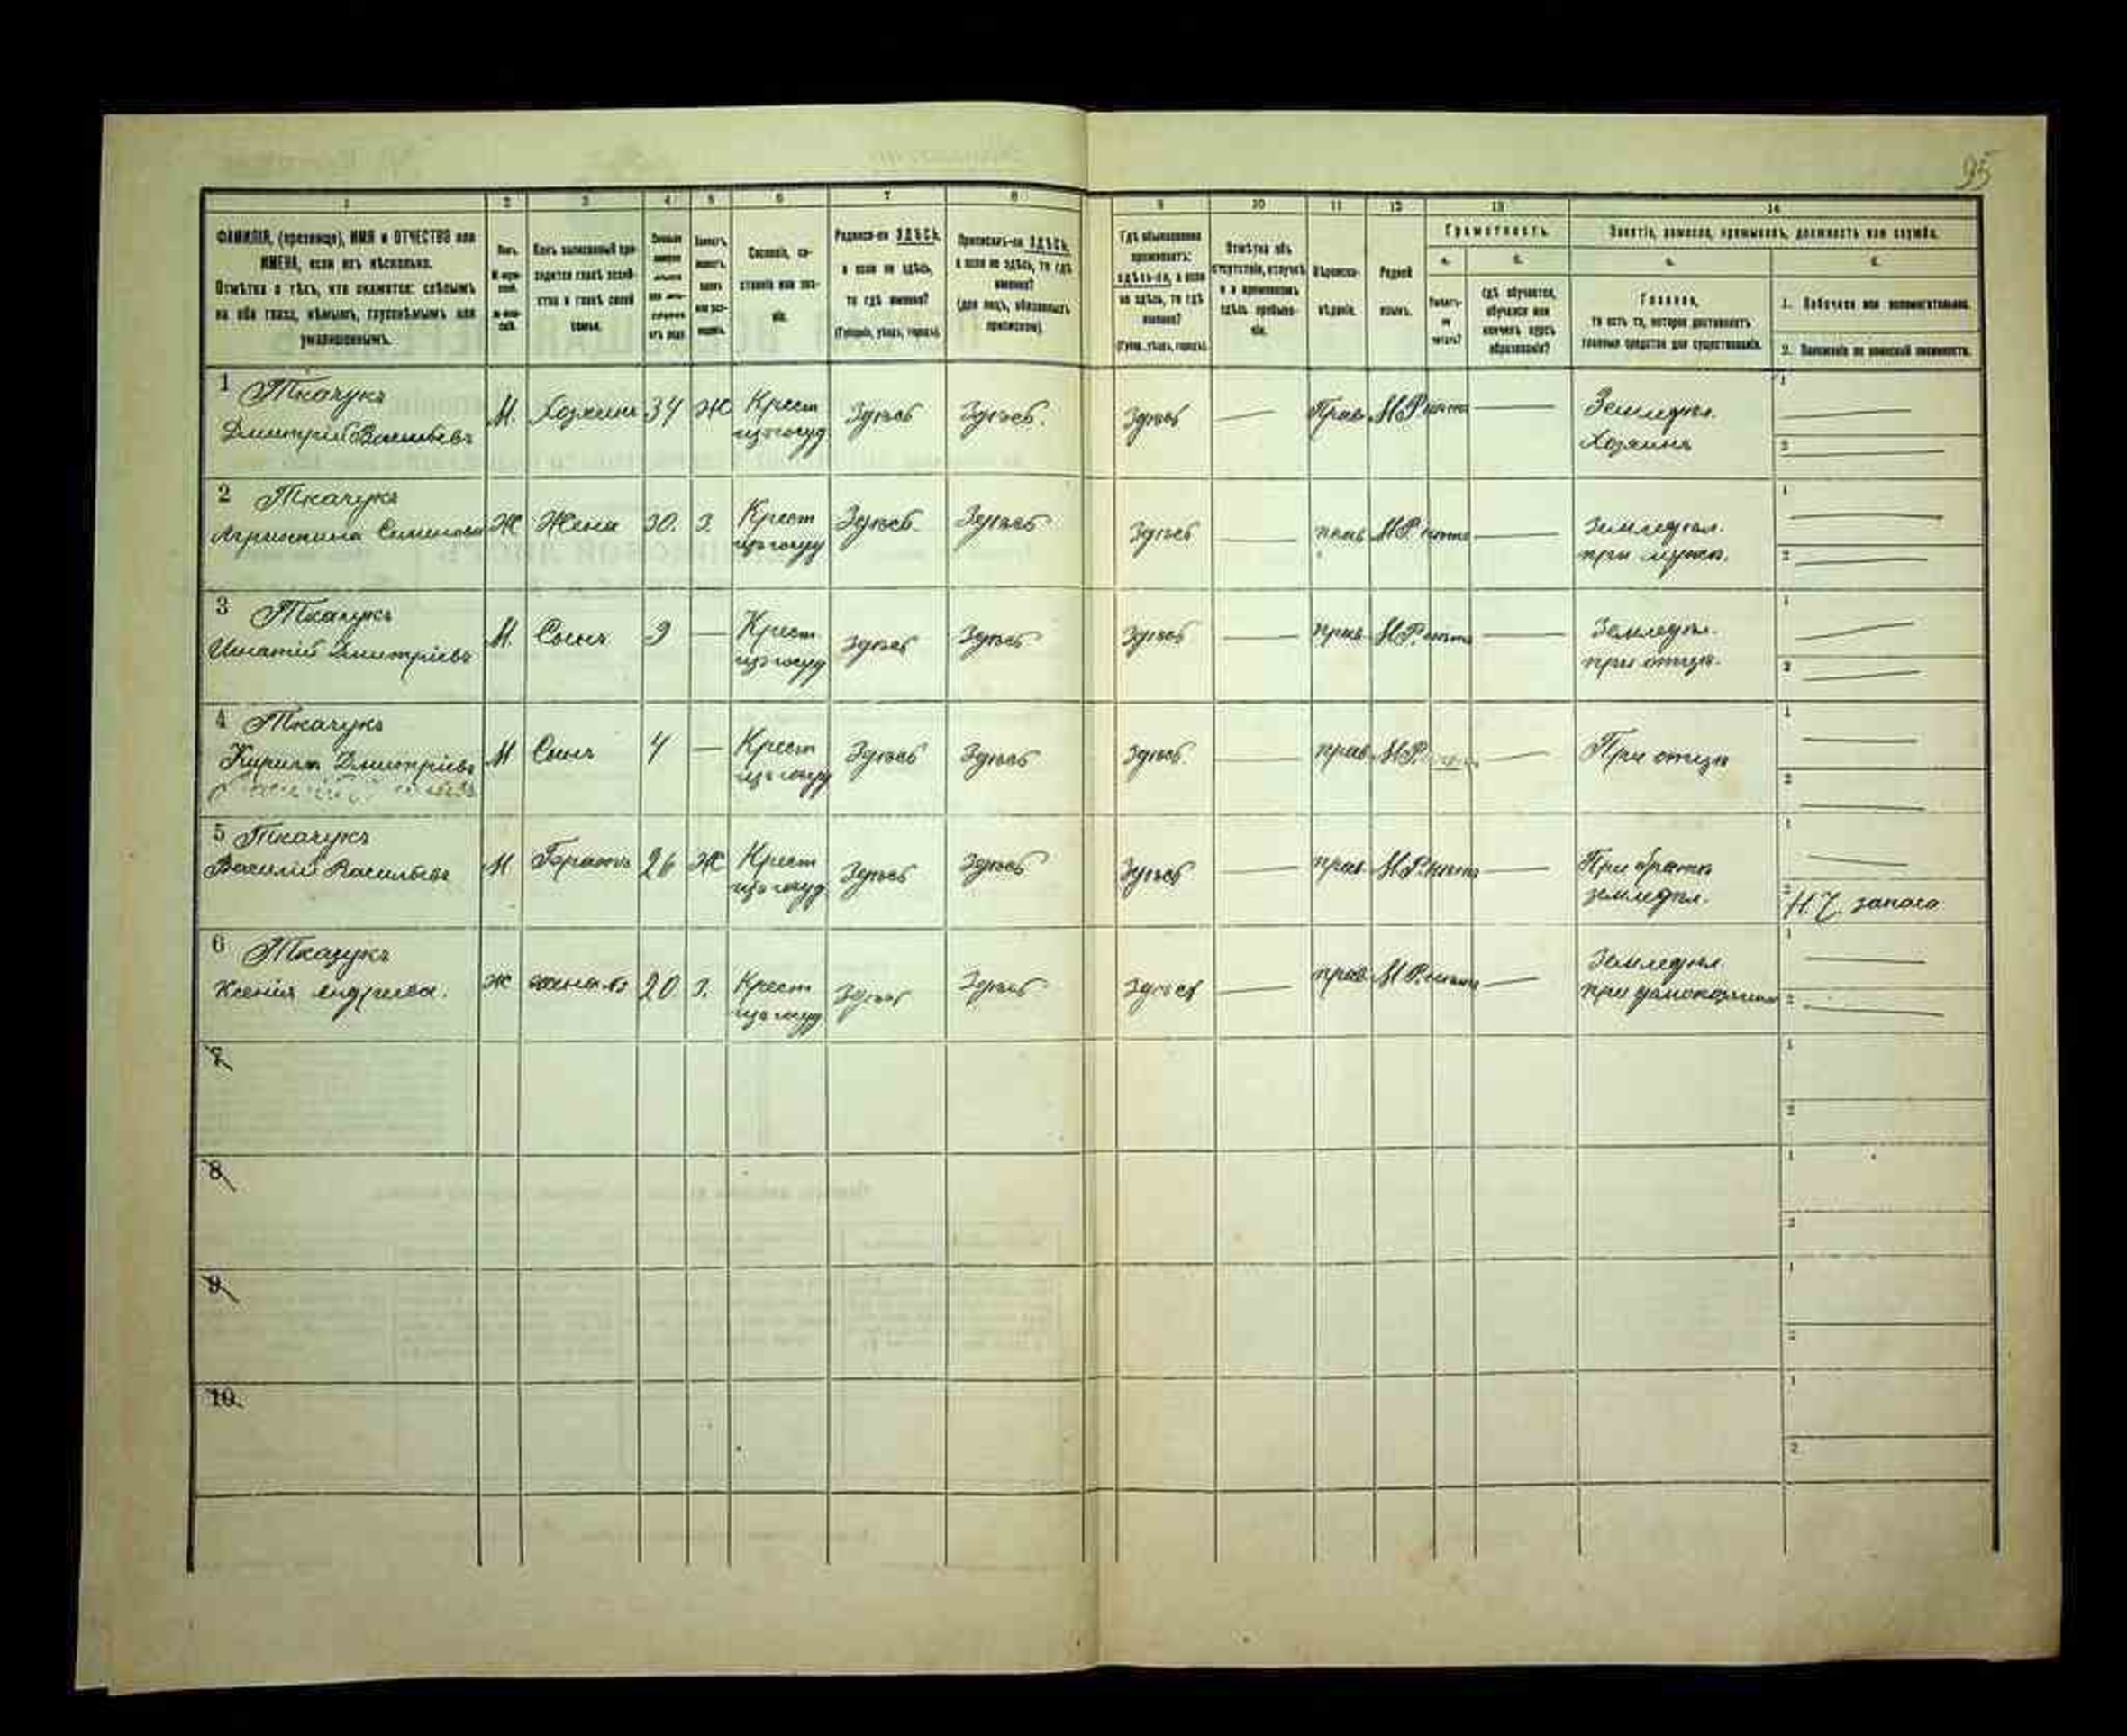 95
1 2 3 4 5 6 7 8 9 10 11 12 13 14
ФАМИЛІЯ, (прозвище), ИМЯ и ОТЧЕСТВО или
ИМЕНА, если ихъ нѣсколько.
Отмѣтка о тѣхъ, кто окажется: слѣпымъ
на оба глаза, нѣмымъ, глухонѣмымъ или
умалишеннымъ.
Полъ.
Какъ записанный при-
ходится главѣ хозяй-
ства и главѣ своей
семьи.
Сословіе, со-
стояніе или зва-
ніе.
Родился-ли ЗДѢСЬ,
а если не здѣсь,
то гдѣ именно?
(Губернія, уѣздъ, городъ).
Приписанъ-ли ЗДѢСЬ,
а если не здѣсь, то гдѣ
именно?
(для лицъ, обязанныхъ
припискою).
Гдѣ обыкновенно
проживаетъ:
здѣсь-ли, а если
не здѣсь, то гдѣ
именно?
(Губ., уѣздъ, городъ).
Отмѣтка объ
отсутствіи, отлучкѣ
и о временномъ
здѣсь пребыва-
ніи.
Вѣроиспо-
вѣданіе.
Родной
языкъ.
Грамотность.
а.
Умѣетъ-
ли
читать?
б.
гдѣ обучается,
обучался или
кончилъ курсъ
образованія?
Занятіе, ремесло, промыселъ, должность или служба.
а.
Главное,
то есть то, которое доставляетъ
главныя средства для существованія.
б.
1. Побочное или вспомогательное.
2. Положеніе по воинской повинности.
1 Ткачукъ
Дмитрій Васильевъ
М. Хозяинъ 34 Ж Крест
изъ госуд
Здѣсь Здѣсь. Здѣсь — Прав М.Р. нѣтъ —
Земледѣл.
Хозяинъ
1
2
2 Ткачукъ
Агрипина Семенова
Ж Жена 30. З. Крест
изъ госуд
Здѣсь Здѣсь Здѣсь — прав М.Р. нѣтъ —
Земледѣл.
при мужѣ.
1
2
3 Ткачукъ
Игнатій Дмитріевъ
М. Сынъ 9 — Крест
изъ госуд
Здѣсь Здѣсь Здѣсь — прав М.Р. нѣтъ —
Земледѣл.
при отцѣ.
1
2
4 Ткачукъ
Кирилъ Дмитріевъ
М Сынъ 4 — Крест
изъ госуд
Здѣсь Здѣсь Здѣсь — прав М.Р. —
При отцѣ
1
2
5 Ткачукъ
Василій Васильевъ
М Братъ 26 Ж Крест
изъ госуд
Здѣсь Здѣсь Здѣсь — прав М.Р. нѣтъ —
При братѣ
земледѣл.
1
2 Н.Ч. запаса
6 Ткачукъ
Ксенія Андреева.
Ж жена 5 20. З. Крест
изъ госуд
Здѣсь Здѣсь Здѣсь — прав М.Р. нѣтъ —
Земледѣл.
при домохозяинѣ
1
2
7
1
2
8
1
2
9
1
2
10.
1
2